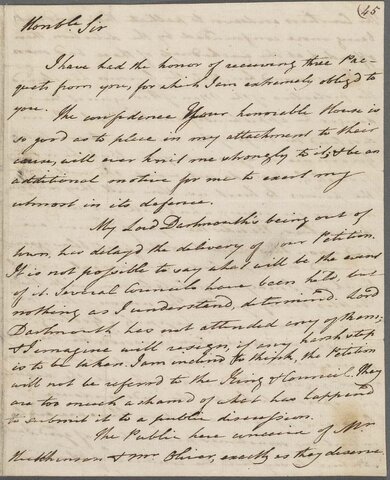 (45
Honble. Sir
I have had the honor of receiving three Pac-
quets from you, for which I am extremely obligd to
you. The confidence Your honorable House is
so good as to place in my attachment to their
cause, will ever knit me strongly to it, & be an
additional motive for me to exert my
utmost in its defence.
My Lord Dartmouth's being out of
town, has delayd the delivery of our Petition.
It is not possible to say what will be the event
of it. Several Councils have been held, but
nothing as I understand, determind. Lord
Dartmouth has not attended any of them;
& I imagine will resign, if any harsh step
is to be taken. I am inclind to think, the Petition
will not be referred to the King & Council. They
are too much ashamd of what has happend
to submit it to a public discussion.
The Public here conceive of Mr
Hutchinson & Mr Oliver, exactly as they deserve.